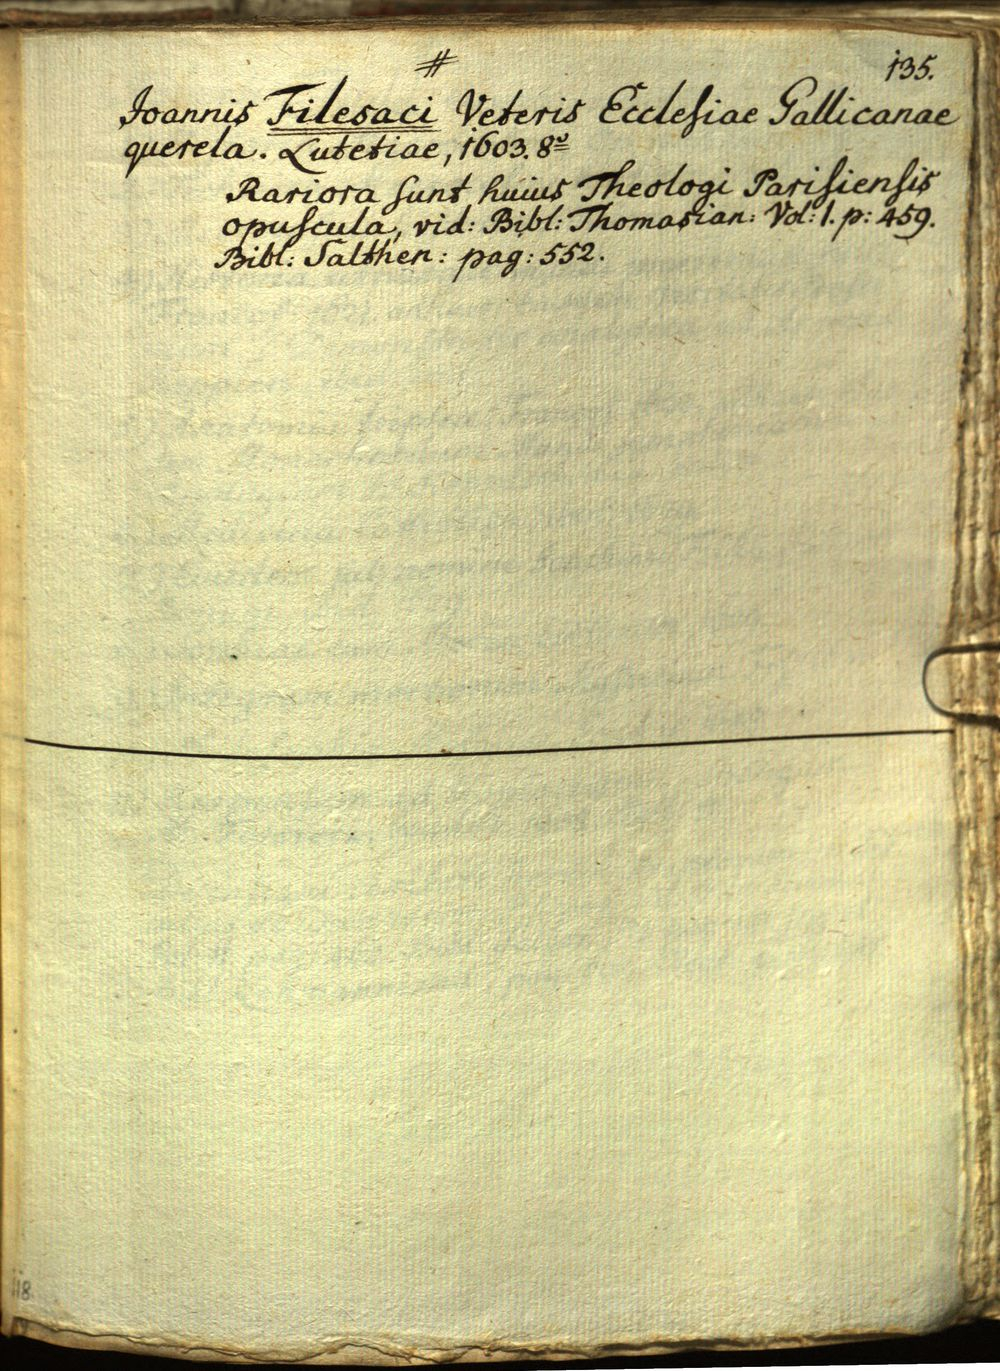 #
135.
Joannis Filesaci Veteris Ecclesiae Gallicanae
querela. Lutetiae, 1603. 8º
Rariora sunt huius Theologi Parisiensis
opuscula, vid: Bibl: Thomasian: Vol: 1. p: 459.
Bibl: Salthen: pag: 552.
118